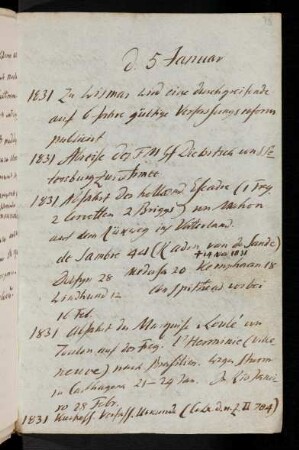 d. 5 Januar
1831 Zu Wismar wird eine durchgreifende
auf 6 Jahre gültige Verfassungsreform
publicirt
1831 Abreise des F.M. Gf Diebitsch von Pe-
tersburg zur Armee
1831 Abfahrt des holländ Escadre (1 Freg
2 Corvetten 2 Briggs) von Mahon
auf dem Rückweg ins Vaterland.
de Sambre 44 (Radm. van de Sande)
† 19 1831
Dolfyn 28 Medusa 20 Komphaan 18
Windhund 12 bei Spithead vorbei
16 Feb.
1831 Abfahrt des Marquis Loulé von
Toulon auf der Freg. l'Herminie (Ville
neuve) nach Brasilien. wegen Sturm
in Carthagena 21-29 Jan. In Rio Janei
ro 28 Febr.
1831 Kurhess. Verfass. Urkunde (II 704)